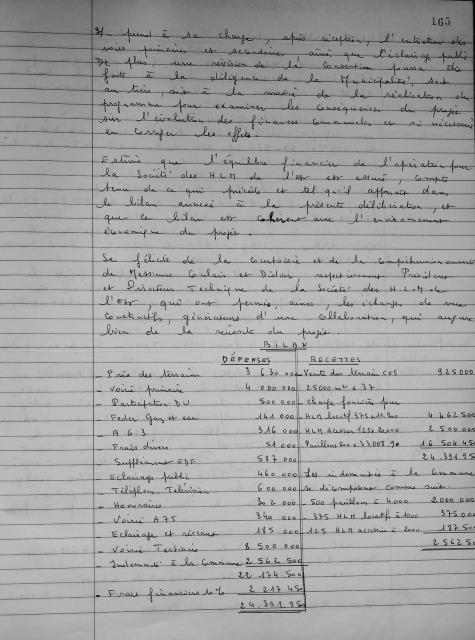 165
3/ prend à sa charge, après réception, l'entretien des
voies primaires et secondaires, ainsi que l'éclairage public
De plus, une révision de la Convention pourra être
faite à la diligence de la Municipalité, soit
au tiers, soit à la moitié de la réalisation du
programme pour examiner les conséquences du projet
sur l'évolution des finances Communales et si nécessaire
en corriger les effets.
Estime que l'équilibre financier de l'opération pour
la Société des HLM de l'Est est assuré, compte
tenu de ce qui précède et tel qu'il apparait dans
le bilan annexé à la présente délibération, et
que ce bilan est cohérent avec l'environnement
économique du projet.
Se félicite de la Courtoisie et de la Compréhension
de Messieurs et Didier, respectivement Président
et Directeur Technique de la Société des H.L.M de
l'Est, qui ont permis, ainsi, les échanges de vue
constructifs, générateurs d'une Collaboration, qui augure
bien de la réussite du projet.
BILAN
DÉPENSES RECETTES
- Prix des terrains 3 630 000 - Vente du terrain CES 925 000
- Voirie primaire 4 000 000 25000 m² x 37
- Participation DU 500 000 - Charge foncière par
Feder Gaz et eau 141 000 - HLM locatif 375 x 11.900 4 462 500
- A 6.3 316 000 HLM Accession 125 x 20000 2 500 000
- Frais divers 51 000 Pavillons 500 x 33 008,90 16 504 450
- Supplément EDF 587 000 24 391 950
- Eclairage public 460 000 Les indemnités à la Commune
- Téléphone Télévision 600 000 se décomposent comme suit:
- Honoraires 302 000 - 500 pavillons à 4000 2000 000
- Voirie A.75 340 000 - 375 HLM locatifs à 1000 375 000
- Eclairage et réseaux 185 000 - 125 HLM accession à 1500 187 500
- Voirie Tertiaire 8 500 000 2 562 500
- Indemnité à la Commune 2 562 500
22 174 500
- Frais financiers 10% 2 217 450
24 391 950